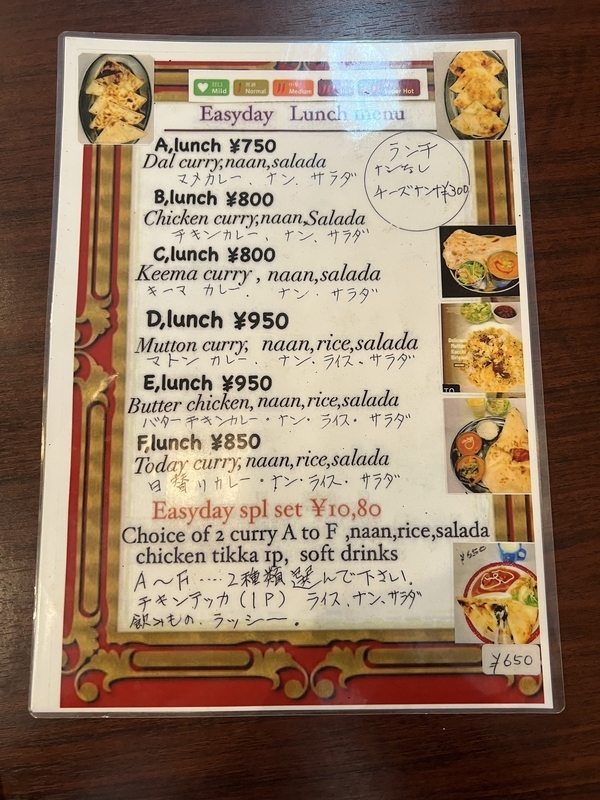 Mild
Normal
Medium
Super Hot
Easyday Lunch menu
A,lunch ¥750
Dal curry,naan,salada
マメカレー、ナン、サラダ
ランチ
ナンなし
チーズナン¥300
B,lunch ¥800
Chicken curry,naan,Salada
チキンカレー、ナン、サラダ
C,lunch ¥800
Keema curry , naan,salada
キーマ カレー、ナン・サラダ
D,lunch ¥950
Mutton curry, naan,rice,salada
マトン カレー、ナン、ライス、サラダ
E,lunch ¥950
Butter chicken, naan,rice,salada
バターチキンカレー・ナン・ライス・サラダ
F,lunch ¥850
Today curry, naan,rice,salada
日替りカレー・ナン・ライス・サラダ
Easyday spl set ¥10,80
Choice of 2 curry A to F ,naan,rice,salada
chicken tikka 1p, soft drinks
A〜F ‥‥ 2種類 選んで下さい.
チキンテッカ (1P) ライス、ナン、サラダ
飲みもの、ラッシー.
¥650
¥650